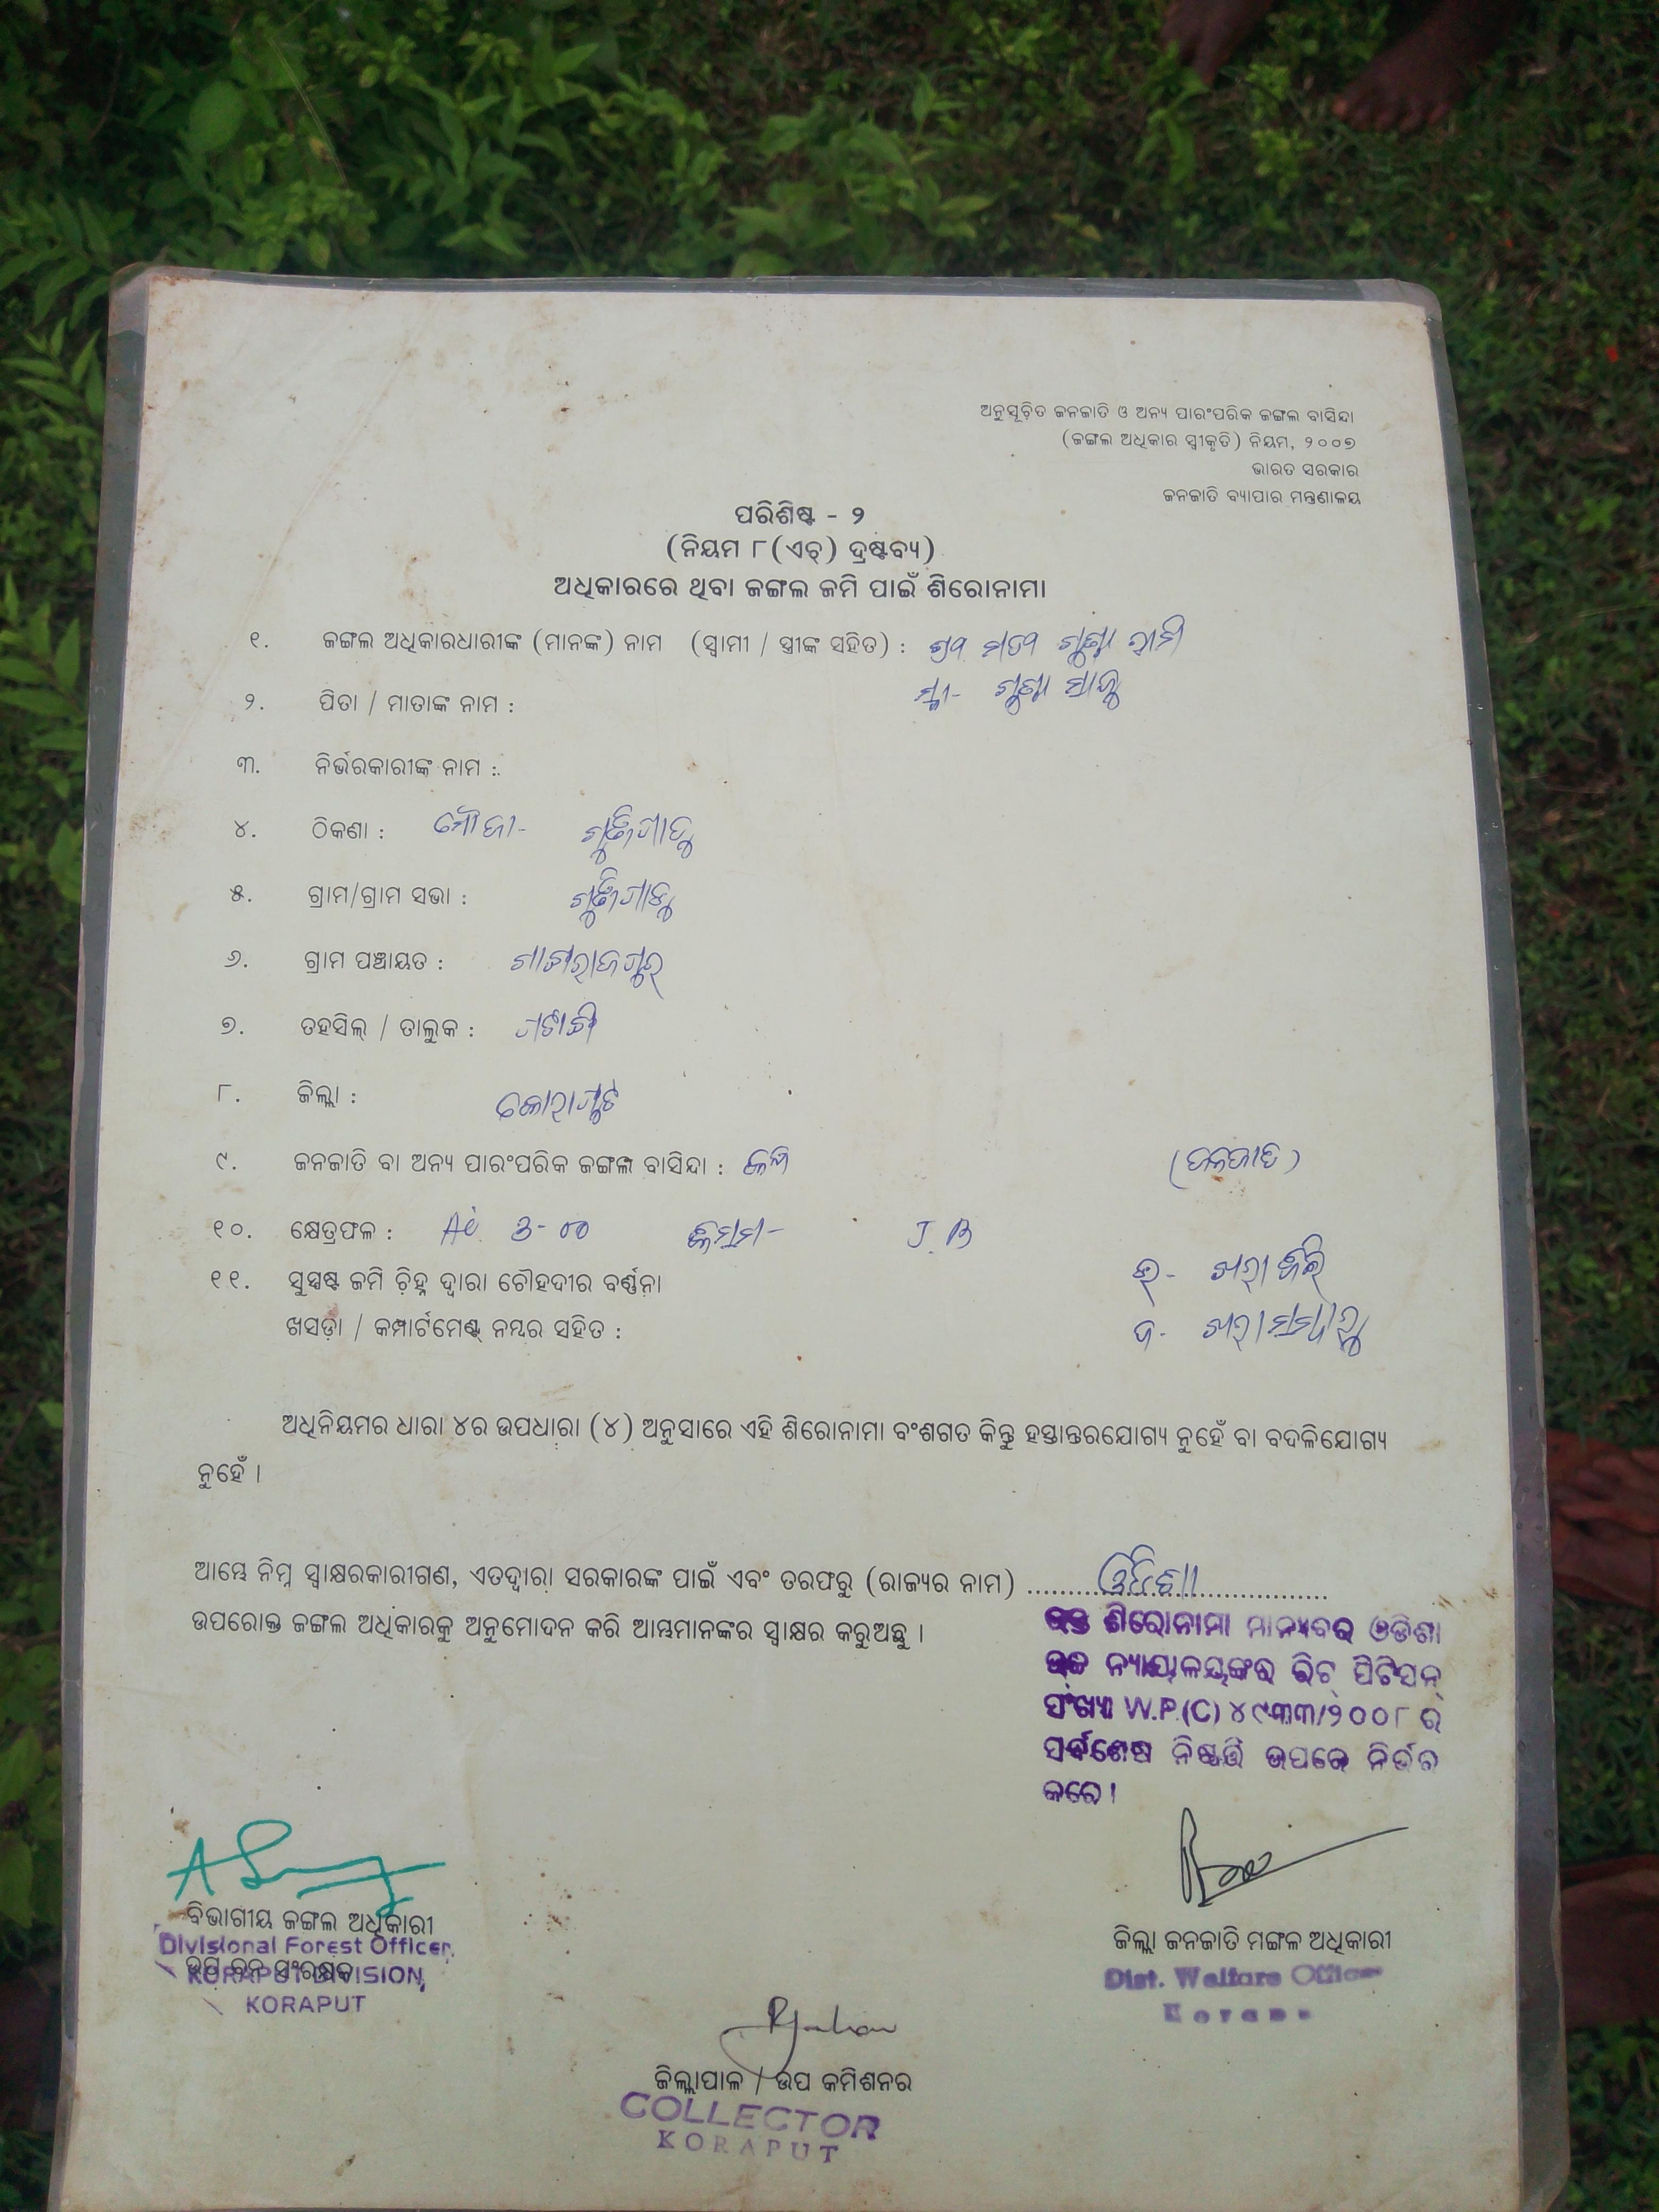 ଅନୁସୂଚିତ ଜନଜାତି ଓ ଅନ୍ୟ ପାରଂପରିକ ଜଙ୍ଗଲ ବାସିନ୍ଦା
(ଜଙ୍ଗଲ ଅଧିକାର ସ୍ୱୀକୃତି) ନିୟମ, ୨୦୦୭
ଭାରତ ସରକାର
ଜନଜାତି ବ୍ୟାପାର ମନ୍ତ୍ରଣାଳୟ
ପରିଶିଷ୍ଟ - ୨
(ନିୟମ ୮(ଏଚ୍) ଦ୍ରଷ୍ଟବ୍ୟ)
ଅଧିକାରରେ ଥିବା ଜଙ୍ଗଲ ଜମି ପାଇଁ ଶିରୋନାମା
୧. ଜଙ୍ଗଲ ଅଧିକାରଧାରୀଙ୍କ (ମାନଙ୍କ) ନାମ (ସ୍ୱାମୀ / ସ୍ତ୍ରୀଙ୍କ ସହିତ) :
୨. ପିତା / ମାତାଙ୍କ ନାମ :
୩. ନିର୍ଭରକାରୀଙ୍କ ନାମ :
୪. ଠିକଣା : ମୌଜା-
୫. ଗ୍ରାମ/ଗ୍ରାମ ସଭା :
୬. ଗ୍ରାମ ପଞ୍ଚାୟତ :
୭. ତହସିଲ୍ / ତାଲୁକ :
୮. ଜିଲ୍ଲା : କୋରାପୁଟ
୯. ଜନଜାତି ବା ଅନ୍ୟ ପାରଂପରିକ ଜଙ୍ଗଲ ବାସିନ୍ଦା : (ଜନଜାତି)
୧୦. କ୍ଷେତ୍ରଫଳ :
୧୧. ସୁସ୍ପଷ୍ଟ ଜମି ଚିହ୍ନ ଦ୍ୱାରା ଚୌହଦୀର ବର୍ଣ୍ଣନା
ଖସଡ଼ା / କମ୍ପାର୍ଟମେଣ୍ଟ୍ ନମ୍ବର ସହିତ :
ଅଧିନିୟମର ଧାରା ୪ର ଉପଧାରା (୪) ଅନୁସାରେ ଏହି ଶିରୋନାମା ବଂଶଗତ କିନ୍ତୁ ହସ୍ତାନ୍ତରଯୋଗ୍ୟ ନୁହେଁ ବା ବଦଳିଯୋଗ୍ୟ
ନୁହେଁ ।
ଆମ୍ଭେ ନିମ୍ନ ସ୍ୱାକ୍ଷରକାରୀଗଣ, ଏତଦ୍ୱାରା ସରକାରଙ୍କ ପାଇଁ ଏବଂ ତରଫରୁ (ରାଜ୍ୟର ନାମ) ଓଡିଶା
ଉପରୋକ୍ତ ଜଙ୍ଗଲ ଅଧିକାରକୁ ଅନୁମୋଦନ କରି ଆମ୍ଭମାନଙ୍କର ସ୍ୱାକ୍ଷର କରୁଅଛୁ ।
ଉକ୍ତ ଶିରୋନାମା ମାନ୍ୟବର ଓଡିଶା
ଉଚ୍ଚ ନ୍ୟାୟାଳୟଙ୍କର ରିଟ୍ ପିଟିସନ୍
ସଂଖ୍ୟା W.P.(C) ୪୯୩୩/୨୦୦୮ ର
ସର୍ବଶେଷ ନିଷ୍ପତ୍ତି ଉପରେ ନିର୍ଭର
କରେ।
ବିଭାଗୀୟ ଜଙ୍ଗଲ ଅଧିକାରୀ
Divisional Forest Officer
ଉପ ବନ ସଂରକ୍ଷକ
KORAPUT DIVISION,
KORAPUT
ଜିଲ୍ଲା ଜନଜାତି ମଙ୍ଗଳ ଅଧିକାରୀ
Dist. Welfare Officer
ଜିଲ୍ଲାପାଳ / ଉପ କମିଶନର
COLLECTOR
KORAPUT